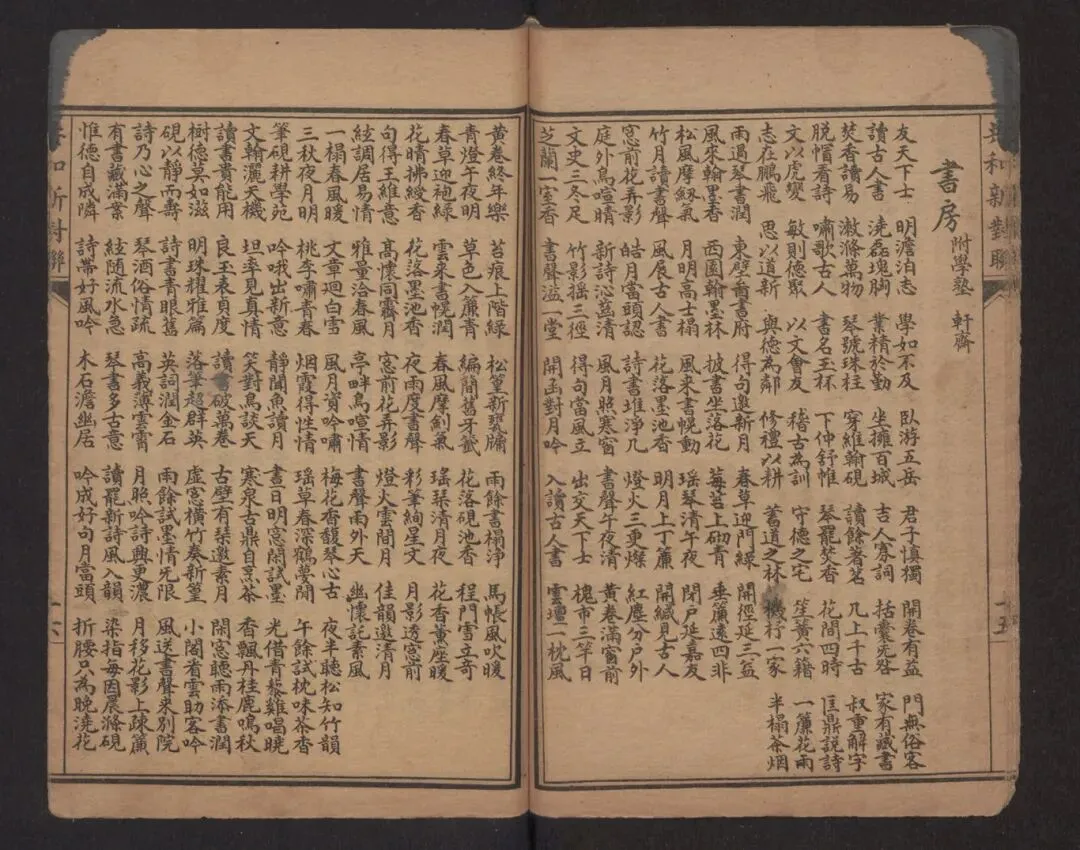 共和新對聯 十五
書房 附學塾 軒齋
友天下士 明澹泊志 學如不及 臥游五岳 君子慎獨 開卷有益 門無俗客
讀古人書 澆磊塊胸 業精於勤 坐擁百城 吉人寡詞 括囊旡咎 家有藏書
焚香讀易 漱滌萬物 琴號珠柱 穿維翰硯 讀餘著茗 几上千古 叔重解字
脱帽看詩 嘯歌古人 書名玉杯 下仲舒帷 琴罷焚香 花間四時 匡鼎説詩
文以虎變 敏則德聚 以文會友 稽古為訓 守德之宅 笙簧六籍 一簾花雨
志在鵬飛 思以道新 與德為鄰 修禮以耕 蓄道之林 行一家 半榻茶烟
雨過琴書潤 東壁圖書府 得句邀新月 春草迎門綠 開徑延三益
風來翰墨香 西園翰墨林 披書坐落花 莓苔上砌青 垂簾遠四非
松風摩劔氣 月明高士榻 風來書幌動 瑶琴清午夜 閉戶延嘉友
竹月讀書聲 風展古人書 花落墨池香 明月上丁簾 開緘見古人
窓前花弄影 皓月當頭認 詩書堆淨几 燈火三更燦 紅塵分戶外
庭外鳥喧晴 新詩沁菡清 風月照寒窗 書聲午夜清 黄卷滿窗前
文史三冬足 竹影摇三徑 得句當風立 出交天下士 槐市三竿日
芝蘭一室香 書聲溢一堂 開函對月吟 入讀古人書 雲壇一枕風
黄卷終年樂 苔痕上階綠 松篁新甕牖 雨餘書榻淨 馬帳風吹暖
青燈午夜明 草色入簾青 編簡舊牙籤 花落硯池香 程門雪立竒
春草迎袍綠 雲來書幌潤 春風摩劍氣 瑶琴清月夜 花香薰座暖
花晴拂綬香 花落墨池香 夜雨度書聲 彩筆絢星文 月影透窓前
句得王維意 高懷同霽月 窓前花弄影 燈火雲間月 佳韻邀清月
絃調居易情 雅量洽春風 亭畔鳥喧情 書聲雨外天 幽懷記素風
一榻春風暖 文章迴白雪 風月資吟嘯 梅花香馥琴心古 夜半聽松知竹韻
三秋夜月明 桃李嘯青春 烟霞得性情 瑶草春深鶴夢閒 午餘試枕味茶香
筆硯耕學苑 吟哦出新意 靜聞魚讀月 晝日明窓閑試墨 光借青藜雞唱曉
文翰灑天機 坦率見真情 笑對鳥談天 寒泉古鼎自烹茶 香飄丹桂鹿鳴秋
讀書貴能用 良玉表貞度 讀書破萬卷 古壁有琴邀素月 閑窓聽雨添書潤
樹德莫如滋 明珠耀雅篇 落筆超群英 虛窓橫竹奏新篁 小閣看雲助客吟
硯以靜而壽 詩書青眼舊 英詞潤金石 雨餘試墨情无限 風送書聲來別院
詩乃心之聲 琴酒俗情疏 高義薄雲霄 月照吟詩興更濃 月移花影上疎簾
有書藏滿案 絃随流水急 琴書多古意 讀罷新詩風入韻 染指每因晨滌硯
惟德自成隣 詩帶好風吟 木石澹幽居 吟成好句月當頭 折腰只為晚澆花
和新對聯 十六